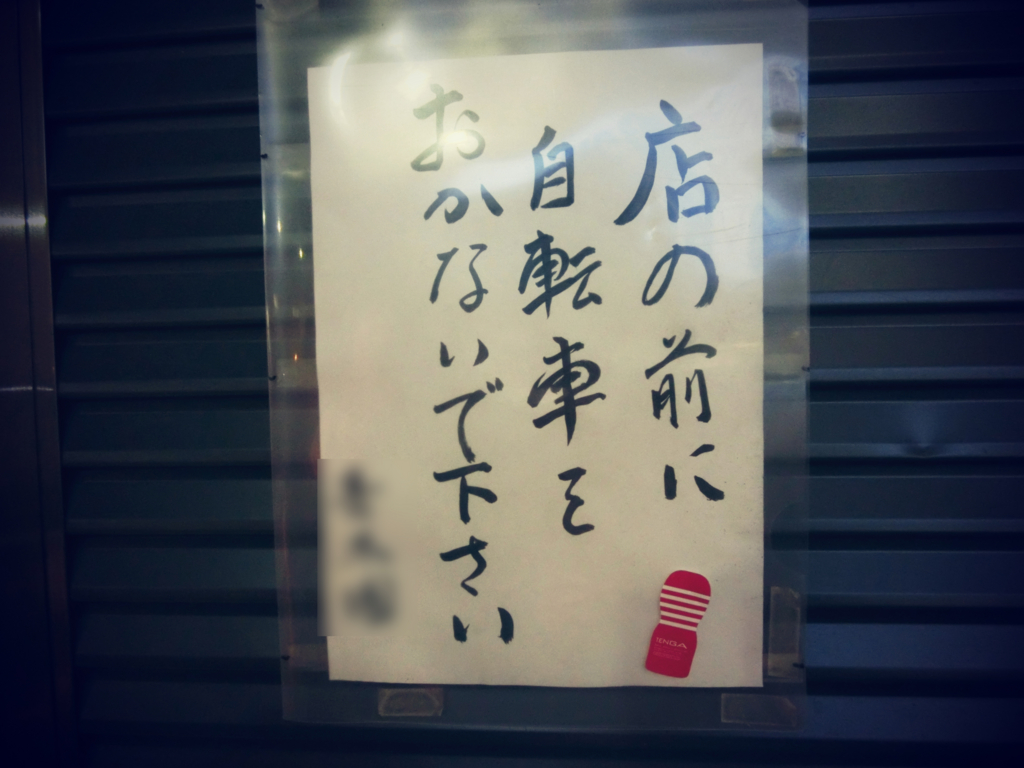 店の前に
自転車を
おかないで下さい
TENGA